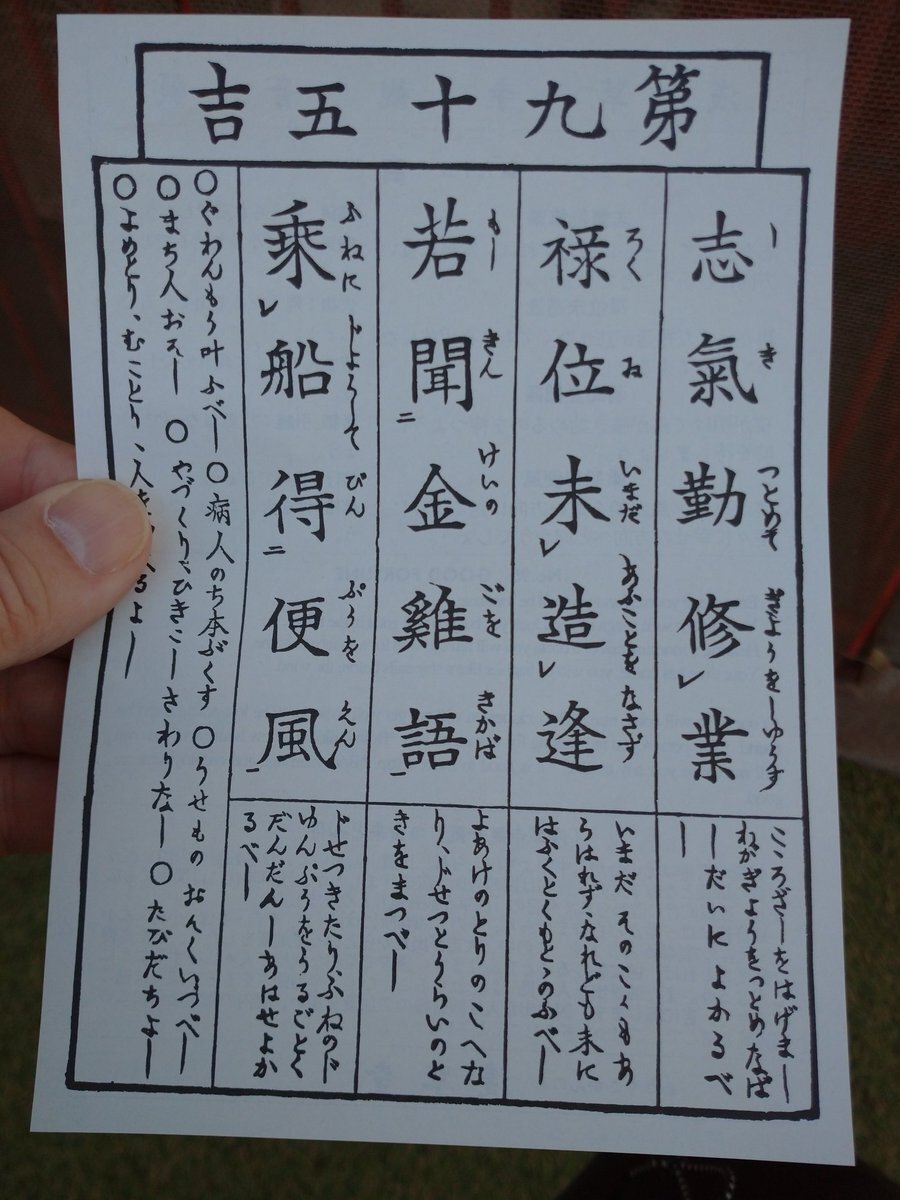 第九十五吉
志氣勤修レ業
し き つとめて ぎようをしゆうす
こころざしをはげまし
わがぎようをつとめなば
しだいによかるべ
し
禄位未レ造レ逢
ろく ゐ いまだ あふことをなさず
いまだそのこうもあ
らはれず、なれども末に
はふくとくもとゝのふべし
若聞二金雞語一
もし きん けいの ごを きかば
よあけのとりのこへな
り、じせつとうらいのと
きをまつべし
乗レ船得二便風一
ふねに じようして びん ぷうを えん
じせつきたりふねのじ
ゆんぷうをうるごとく
だんだんしあはせよか
るべし
○ぐわんもう叶ふべし ○病人のち本ぶくす ○うせもの おそくいづべし
○まち人おそし ○やづくり、ひきこしさわりなし ○たびだちよし
○よめどり、むことり、人を るよし